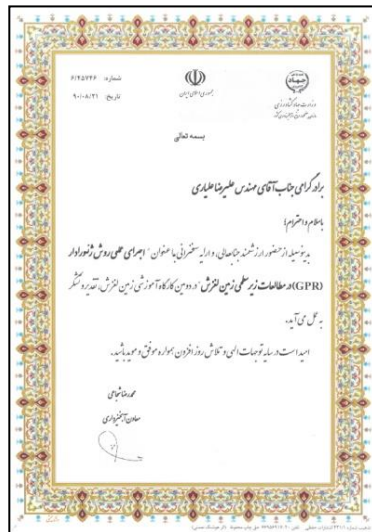 شماره: ۶/۴۵۷۴۶
تاریخ: ۹۰/۰۸/۲۱
جمهوری اسلامی ایران
جهاد
وزارت جهاد کشاورزی
بسمه تعالی
برادر گرامی جناب آقای مهندس علیرضا علیاری
با سلام و احترام؛
بدینوسیله از حضور ارزشمند جنابعالی، و ارایه سخنرانی با عنوان " اجرای عملی روش ژئورادار
(GPR) در مطالعات زیر سطحی زمین لغزش" در دومین کارگاه آموزشی زمین لغزش، تقدیر و تشکر
به عمل می آید.
امید است در سایه توجهات الهی و تلاش روز افزون همواره موفق و موید باشید.
محمدرضا شجاعی
معاون آبخیزداری